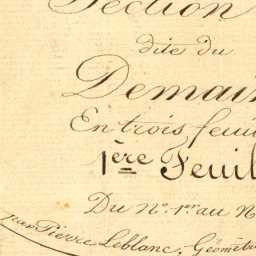 Section
dite du
Demain
En trois feuil
1ère Feuil
Du Nº 1er au N
par Pierre Leblanc, Géomètr